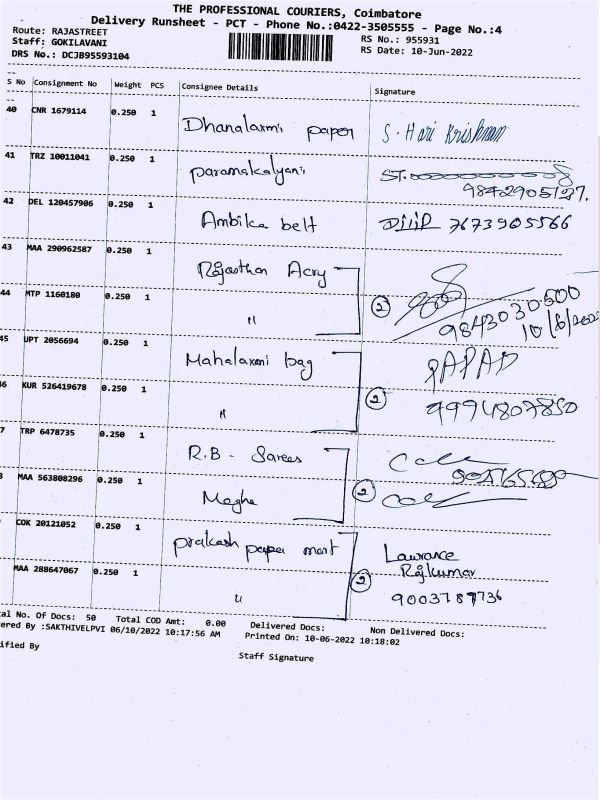 THE PROFESSIONAL COURIERS, Coimbatore
Delivery Runsheet - PCT - Phone No.:0422-3505555 - Page No.:4
Route: RAJASTREET
RS No.: 955931
Staff: GOKILAVANI
RS Date: 10-Jun-2022
DRS No.: DCJB95593104
S No Consignment No Weight PCS Consignee Details Signature
40 CNR 1679114 0.250 1 Dhanalaxmi paper S. Hari Krishnan
41 TRZ 10011041 0.250 1 paramakalyani ST.
9842905127.
42 DEL 120457906 0.250 1 Ambika belt Dilip 7673905566
43 MAA 290962587 0.250 1 Rajasthan Acry
44 MTP 1160180 0.250 1 " 2 9843030500
10/6/202
45 UPT 2056694 0.250 1 Mahalaxmi bag PAPAD
46 KUR 526419678 0.250 1 " 2 9994807850
7 TRP 6478735 0.250 1 R.B - Sarees
MAA 563808296 0.250 1 Megha 2
COK 20121052 0.250 1 prakash paper mart Lawrance
Rajkumar
MAA 288647067 0.250 1 " 2 9003787736
al No. Of Docs: 50 Total COD Amt: 0.00 Delivered Docs: Non Delivered Docs:
ered By :SAKTHIVELPVI 06/10/2022 10:17:56 AM Printed On: 10-06-2022 10:18:02
ified By Staff Signature